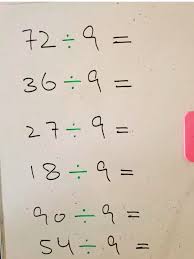 72 ÷ 9 =
36 ÷ 9 =
27 ÷ 9 =
18 ÷ 9 =
90 ÷ 9 =
54 ÷ 9 =